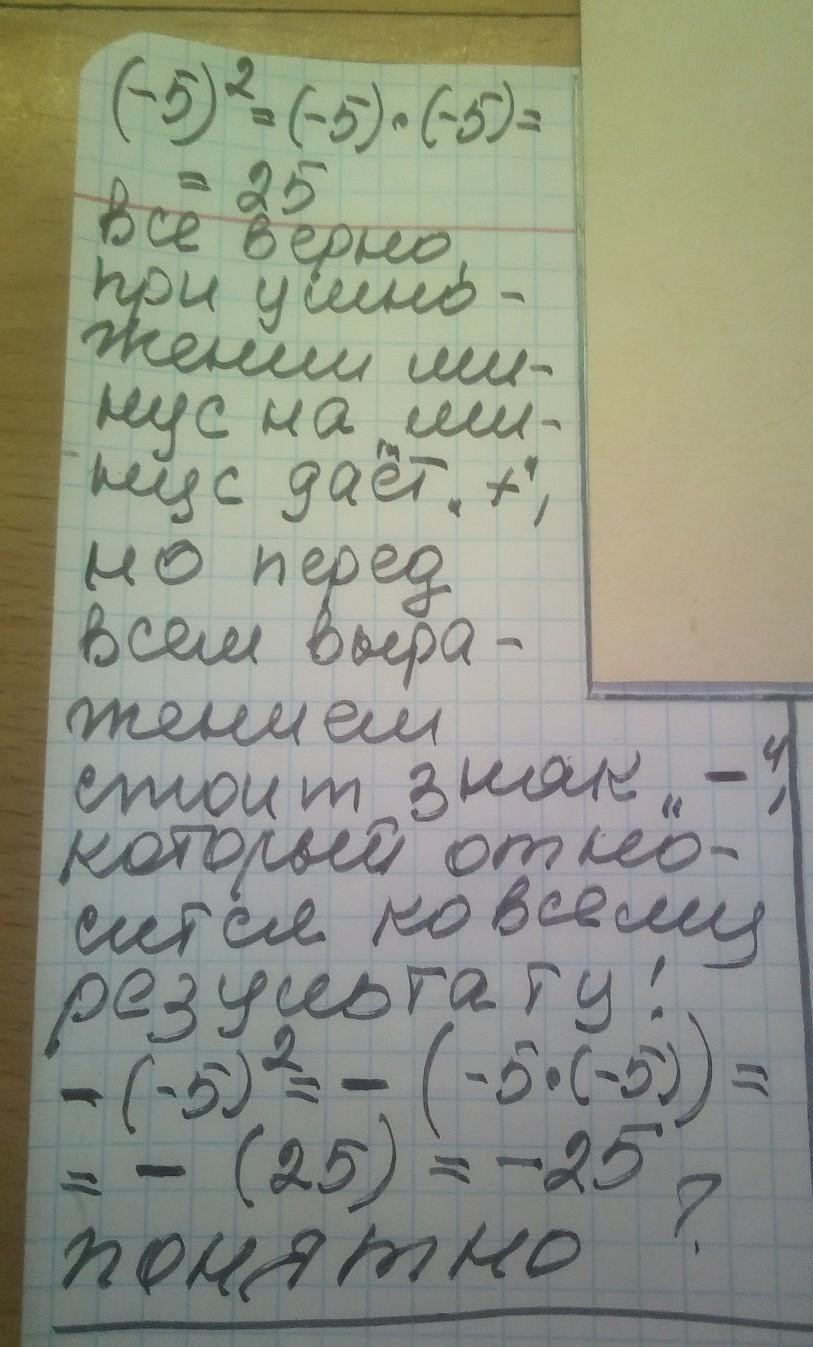 (-5)² = (-5)·(-5)=
= 25
все верно,
при умно-
жении ми-
нус на ми-
нус даёт „+“,
но перед
всем выра-
жением
стоит знак „-“,
который отно-
сится ко всему
результату!
-(-5)² = - (-5·(-5)) =
= - (25) = -25
понятно?